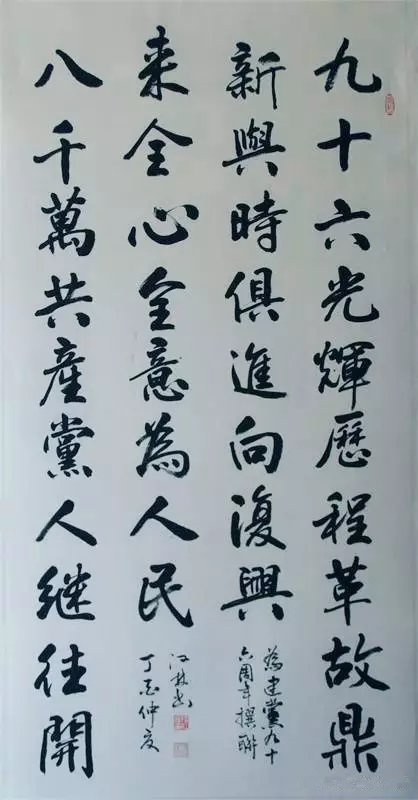 九十六光輝歷程革故鼎
新與時俱進向復興
為建黨九十
六周年撰聯
八千萬共產黨人继往開
来全心全意為人民
丁酉仲夏